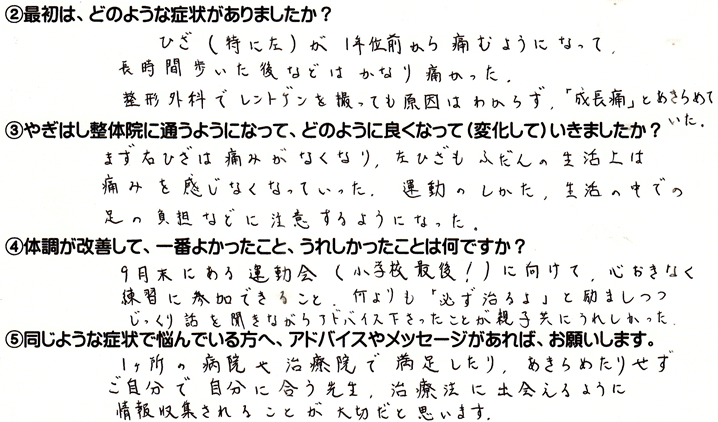 ②最初は、どのような症状がありましたか？
ひざ(特に左)が1年位前から痛むようになって、
長時間歩いた後などはかなり痛かった。
整形外科でレントゲンを撮っても原因はわからず、「成長痛」とあきらめて
いた。
③やぎはし整体院に通うようになって、どのように良くなって(変化して)いきましたか？
まず右ひざは痛みがなくなり、左ひざもふだんの生活上は
痛みを感じなくなっていった。運動のしかた、生活の中での
足の負担などに注意するようになった。
④体調が改善して、一番よかったこと、うれしかったことは何ですか？
9月末にある運動会(小学校最後！)に向けて、心おきなく
練習に参加できること。何よりも「必ず治るよ」と励ましつつ
じっくり話を聞きながらアドバイス下さったことが親子共にうれしかった。
⑤同じような症状で悩んでいる方へ、アドバイスやメッセージがあれば、お願いします。
1ヶ所の病院や治療院で満足したり、あきらめたりせず
ご自分で自分に合う先生、治療法に出会えるように
情報収集されることが大切だと思います。